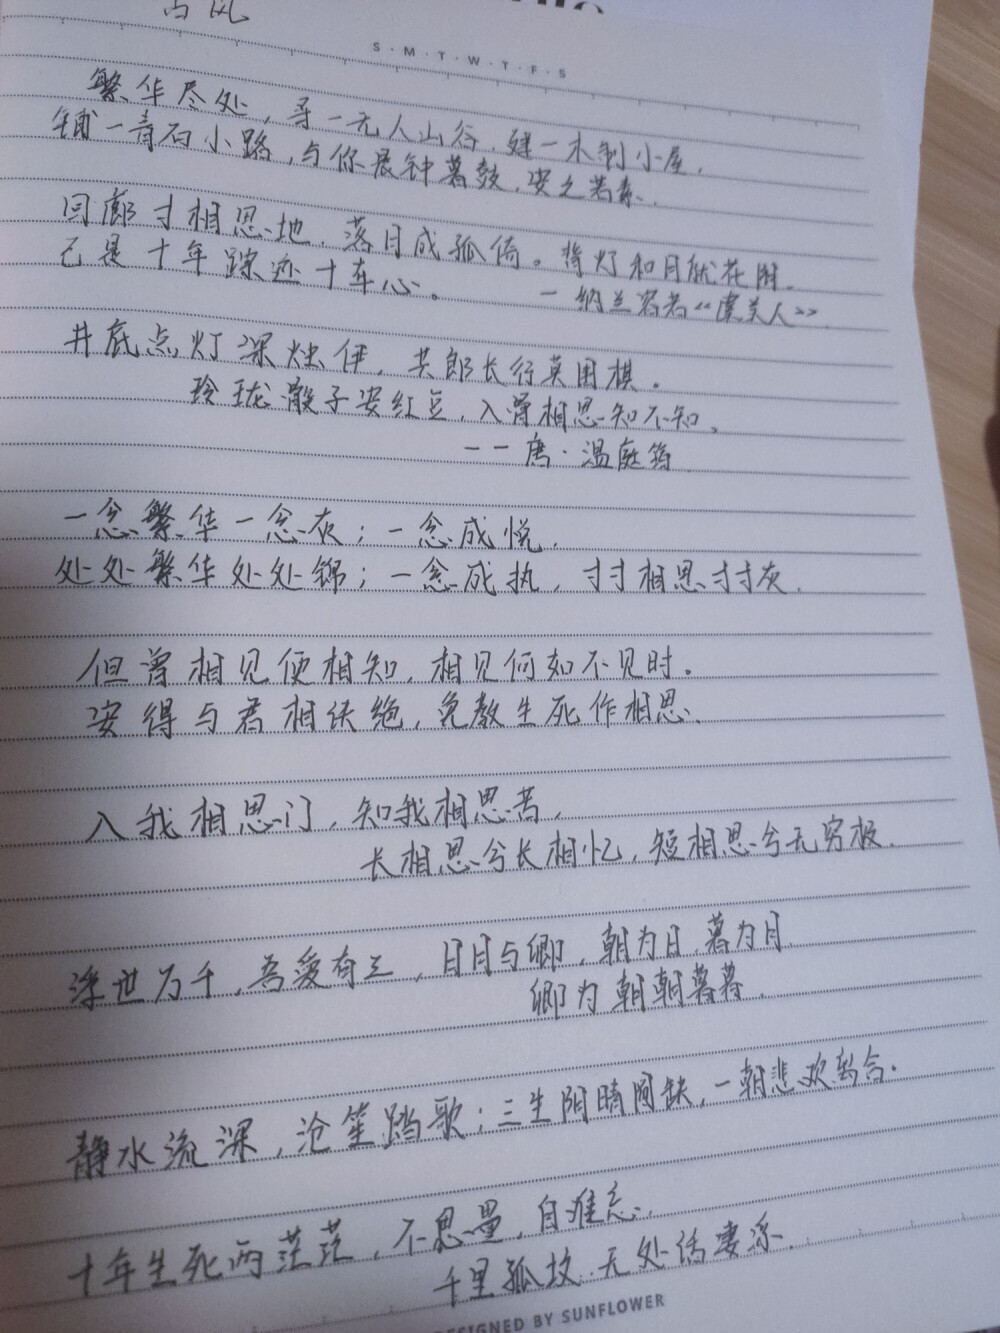 古风
S·M·T·W·T·F·S
繁华尽处，寻一无人山谷，建一木制小屋，
铺一青石小路，与你晨钟暮鼓，安之若素。
回廊寸相思地，落月成孤倚。背灯和月就花阴，
已是十年踪迹十年心。
—纳兰容若《虞美人》
井底点灯深烛伊，共郎长行莫围棋。
玲珑骰子安红豆，入骨相思知不知。
——唐·温庭筠
一念繁华一念灰；一念成悦，
处处繁华处处锦；一念成执，寸寸相思寸寸灰。
但曾相见便相知，相见何如不见时。
安得与君相伏绝，免教生死作相思。
入我相思门，知我相思苦，
长相思兮长相忆，短相思兮无穷极。
浮世万千，吾爱有三，日月与卿，朝为日，暮为月
卿为朝朝暮暮。
静水流深，沧笙踏歌；三生阴晴圆缺，一朝悲欢离合。
十年生死两茫茫，不思量，自难忘，
千里孤坟，无处话凄凉。
DESIGNED BY SUNFLOWER